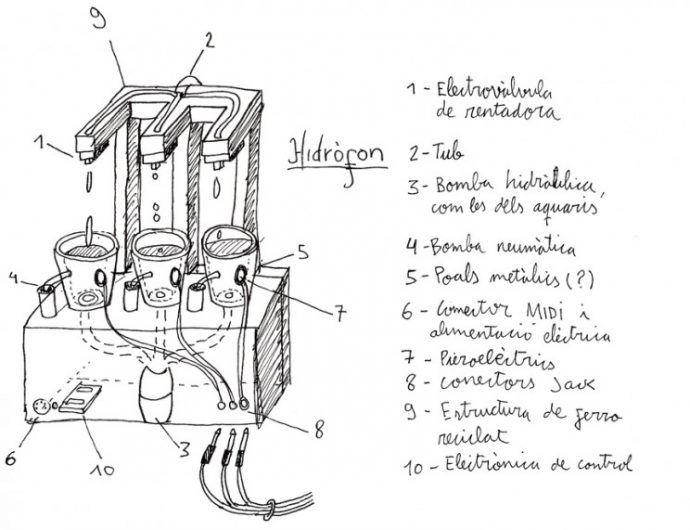 9
2
1
Hidròfon
4
5
7
6
10
3
8
1 - Electrovàlvula
de rentadora
2 - Tub
3 - Bomba hidràulica,
com les dels aquaris
4 - Bomba neumàtica
5 - Poals metàlics (?)
6 - Conector MIDI i
alimentació elèctrica
7 - Piezoelèctrics
8 - conectors Jack
9 - Estructura de ferro
reciclat
10 - Electrònica de control